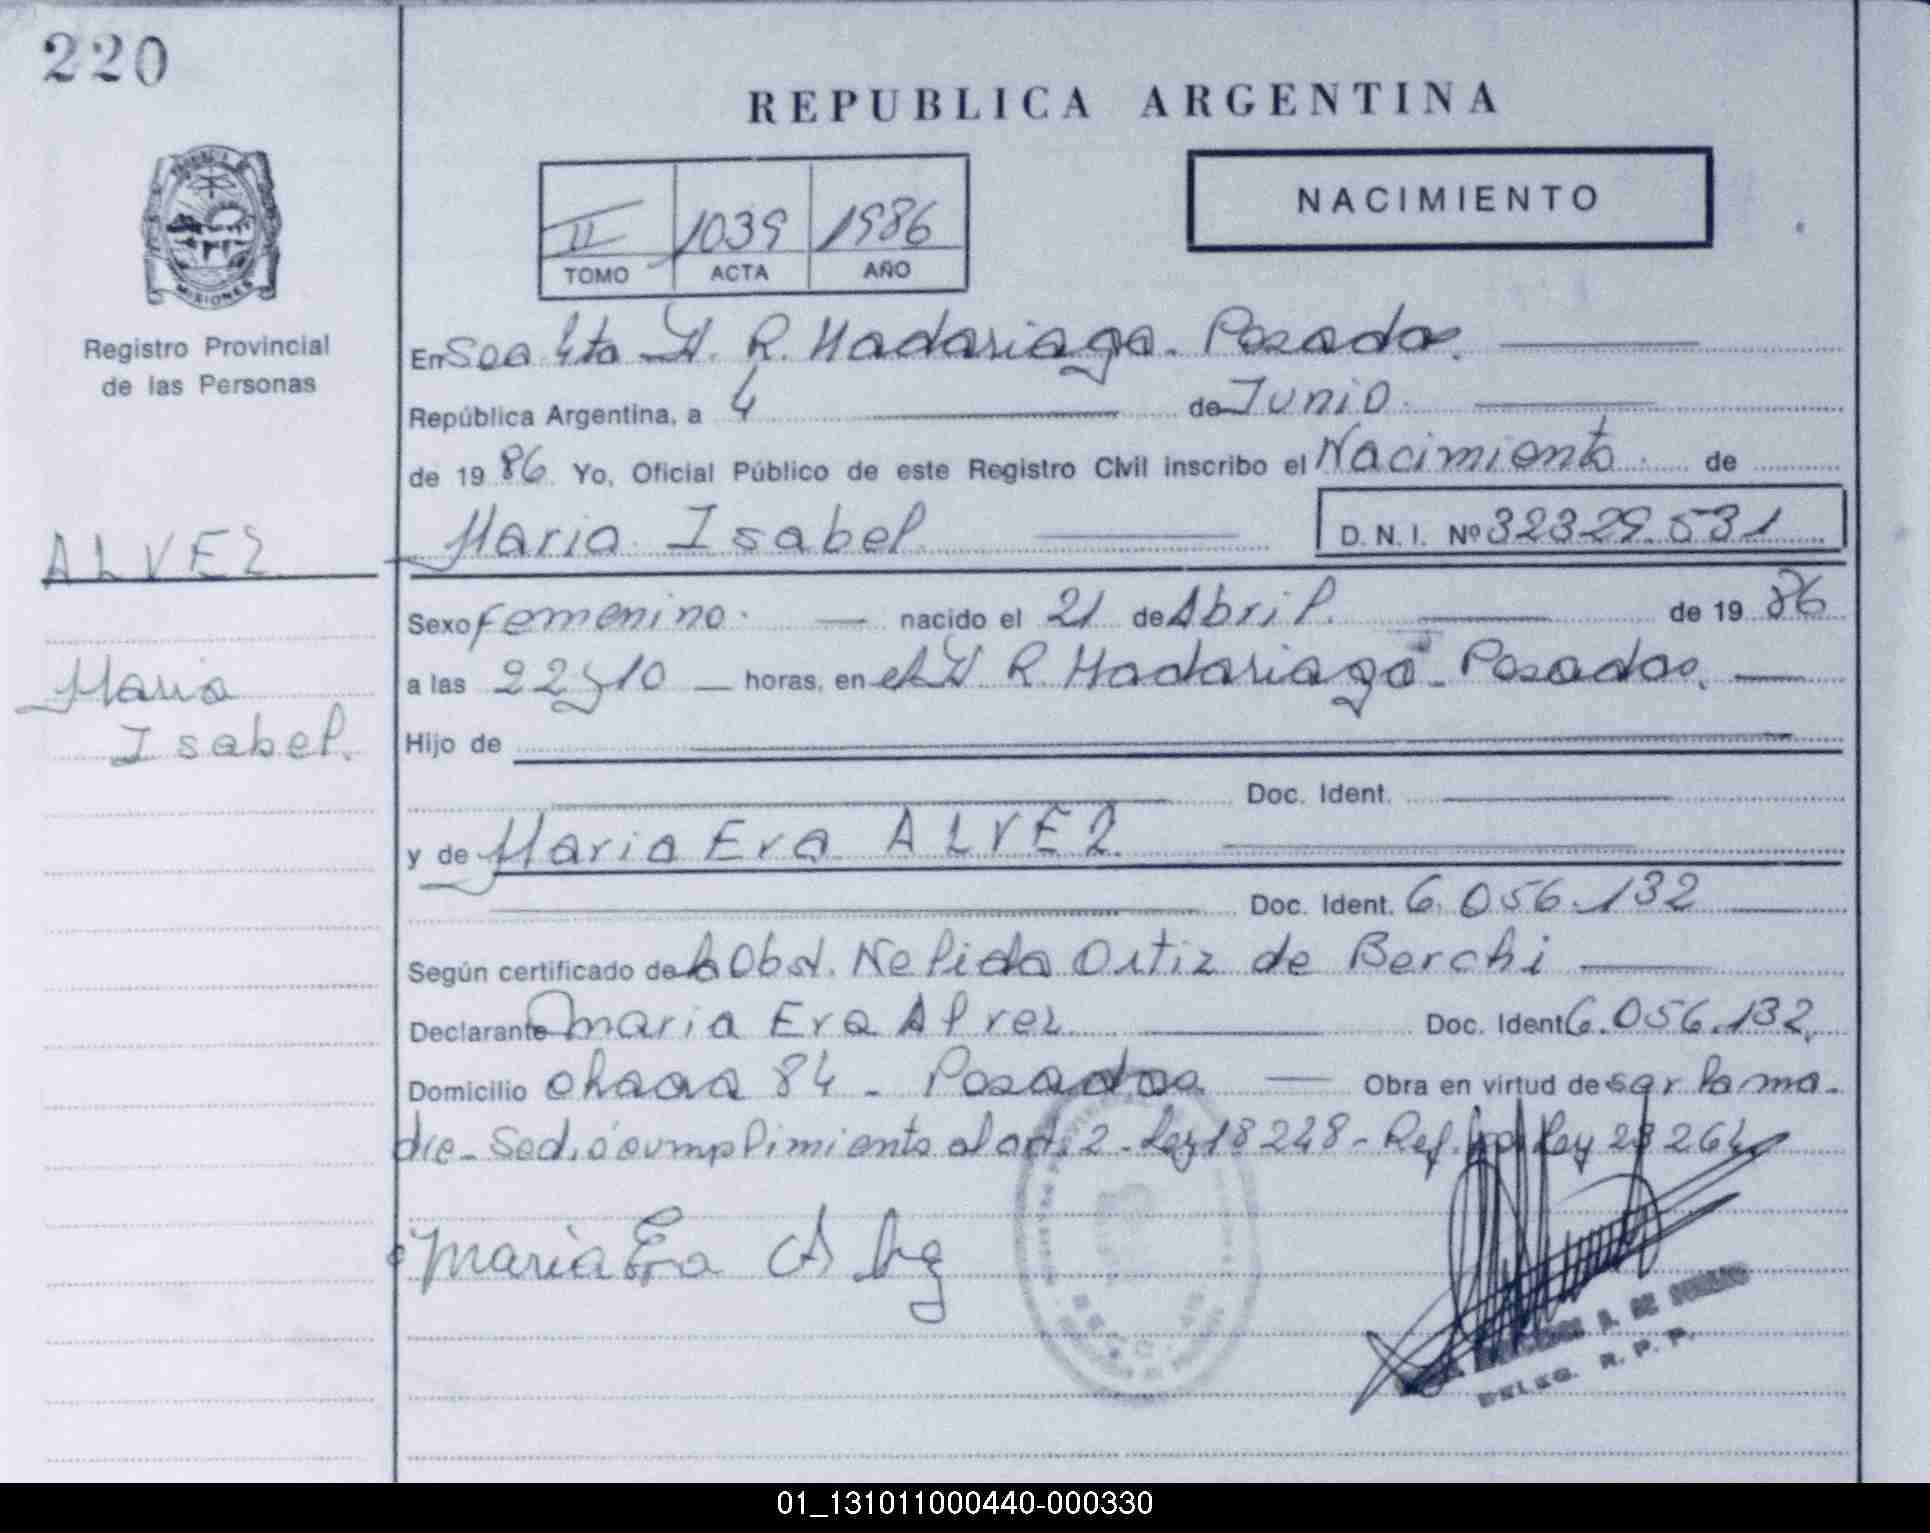 220
REPUBLICA ARGENTINA
NACIMIENTO
II 1039 1986
TOMO ACTA AÑO
MISIONES
Registro Provincial
de las Personas
En Sea 4ta H. R. Madariaga - Posadas.
República Argentina, a 4 de Junio
de 1986 Yo, Oficial Público de este Registro Civil inscribo el Nacimiento de
ALVEZ
Maria Isabel D. N. I. Nº 32329.531
Sexo femenino. nacido el 21 de Abril. de 1986
Maria
a las 22 y 10 horas, en el H R. Madariaga - Posadas.
Isabel.
Hijo de
Doc. Ident.
y de Maria Eva ALVEZ
Doc. Ident. 6.056.132
Según certificado de la Obst. Nelida Ortiz de Berchi
Declarante Maria Eva Alvez Doc. Ident 6.056.132,
Domicilio chacra 84 - Posadas. Obra en virtud de ser la ma-
dre - Se dió cumplimiento al art. 2 - Ley 18248 - Ref. por Ley 23264
Maria Eva Alvez
DE
DELEG. R. P. P.
01_131011000440-000330